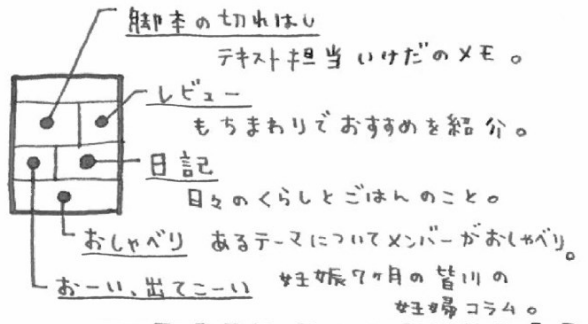 脚本の切れはし
テキスト担当いけだのメモ。
レビュー
もちまわりでおすすめを紹介。
日記
日々のくらしとごはんのこと。
おしゃべり あるテーマについてメンバーがおしゃべり。
おーい、出てこーい 妊娠7ヶ月の皆川の
妊婦コラム。